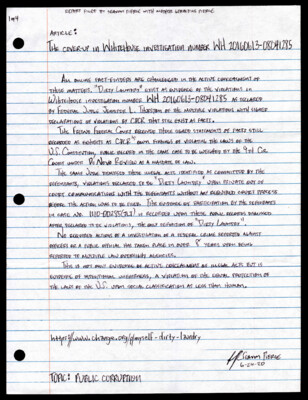 1 of 1
EXPERT PILOT BY
ARTICLE:
THE COVER-UP IN WHITEHOUSE INVESTIGATION NUMBER WH 20160613-08041285
ALL ONLINE FACT-FINDERS ARE CHALLENGED IN THE ACTIVE CONCEALMENT OF
THESE MATTERS. "DIRTY LAUNDRY" EXIST AS EVIDENCE IN THE VIOLATIONS IN
WHITEHOUSE INVESTIGATION NUMBER WH 20160613-08041285 AS DECLARED
BY FEDERAL JUDGE JENNIFER L. THURSTON OF THE MULTIPLE VIOLATIONS WITH
DECLARATIONS OF VIOLATIONS BY CDCR THAT STILL EXIST AS FACTS.
THE FRESNO FEDERAL COURT RECEIVED THESE STATEMENTS OF FACTS STILL
RECORDED AS EXHIBITS AS CDCR'S FINDING OF VIOLATING THE LAWS OF THE
U.S. CONSTITUTION, PUBLIC RELATED IN THE SAME CASE TO BE WEIGHED BY THE 9TH CIR.
COURT UNDER DE NOVO REVIEW AS A MATTER OF LAW.
THE SAME JUDGE DEFENDED THESE ILLEGAL ACTS IDENTIFIED AS COMMITTED BY THE
DEFENDANTS, VIOLATIONS RELATED TO THE "DIRTY LAUNDRY" UPON PRIVATE OUT OF
COURT COMMUNICATIONS WITH THE DEFENDANTS WITHOUT ANY PROBABLE CAUSE
BEFORE THE ACTION WAS TO BE FILED. THE EVIDENCE OF PARTICIPATION BY THE DEFENDANTS
IN CASE NO. IS RECORDED UPON THESE PUBLIC RECORDS
AFTER DECLARED TO BE VIOLATIONS, THE ONLY DEFINITION OF "DIRTY LAUNDRY".
NO REQUIRED ACTIONS BY A INVESTIGATION OF A FEDERAL CRIME REPORTED AGAINST
OFFICERS OR A PUBLIC OFFICIAL HAS TAKEN PLACE IN OVER YEARS UPON BEING
REPORTED TO MULTIPLE LAW OVERSIGHT AGENCIES.
THIS IS NOT ONLY EVIDENCE OF ACTIVE CONCEALMENT OF ILLEGAL ACTS BUT IS
EVIDENCE OF INTENTIONAL UNFAIRNESS, A VIOLATION OF THE EQUAL PROTECTION OF
THE LAWS OF THE U.S. UPON SOCIAL CLASSIFICATION AS LESS THAN HUMAN.
PIERCE
6-24-20
TOPIC: PUBLIC CORRUPTION